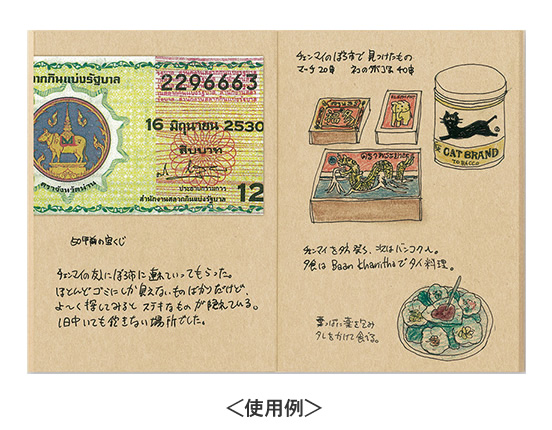 ลากกินแบ่งรัฐบาล
2296663
16 มิถุนายน 2530
สิบบาท
ตราจังหวัดน่าน
ประธานกรรมการ
สำนักงานสลากกินแบ่งรัฐบาล
12
前の宝くじ
チェンマイの友にぼろ市に連れていってもらった。
ほとんどゴミにしか見えないものばかりだけど、
よーく探してみると ステキなものが隠れている。
1日中いても飽きない場所でした。
チェンマイのぼろ市で見つけたもの
マッチ 20 40
CAT BRAND
TOBACCO
チェンマイを 次はバンコクへ。
夕食は Baan Khanitha でタイ料理。
葉っぱに葉を包み
タレをかけて食べる。
＜使用例＞